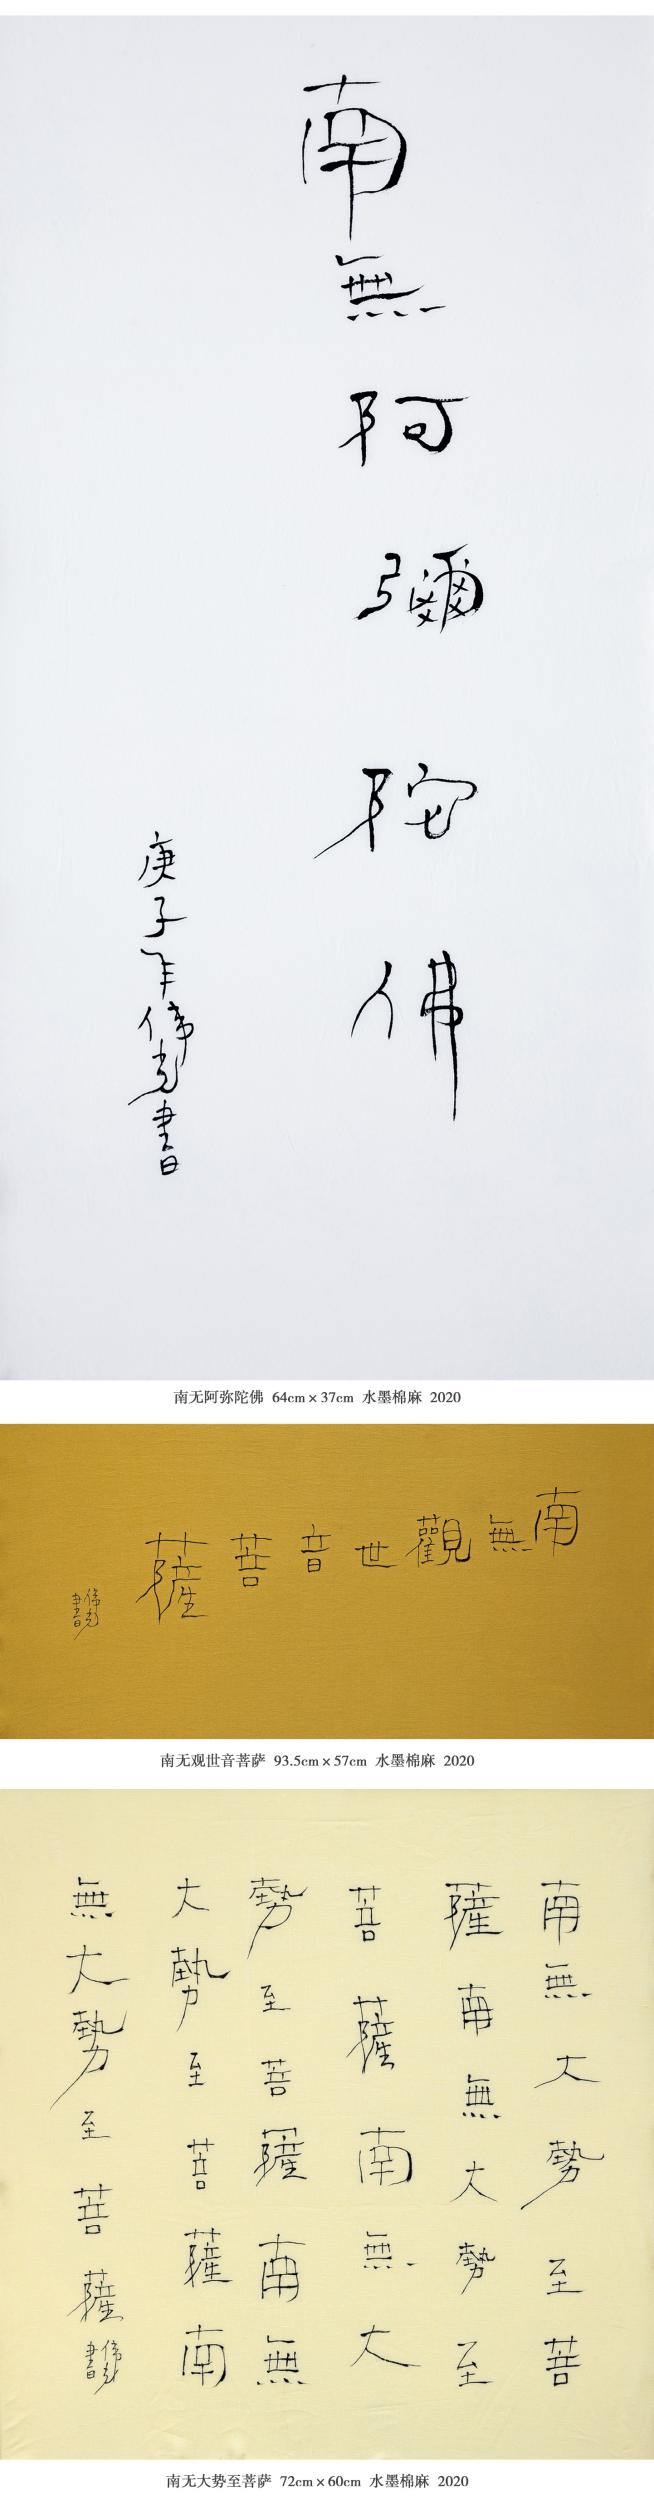 南無阿彌陀佛
庚子年偉光書
南无阿弥陀佛 64cm×37cm 水墨棉麻 2020
南無觀世音菩薩
偉光
書
南无观世音菩萨 93.5cm×57cm 水墨棉麻 2020
南無大勢至菩
薩南無大勢至
菩薩南無大
勢至菩薩南無
大勢至菩薩南
無大勢至菩薩
偉光
書
南无大势至菩萨 72cm×60cm 水墨棉麻 2020